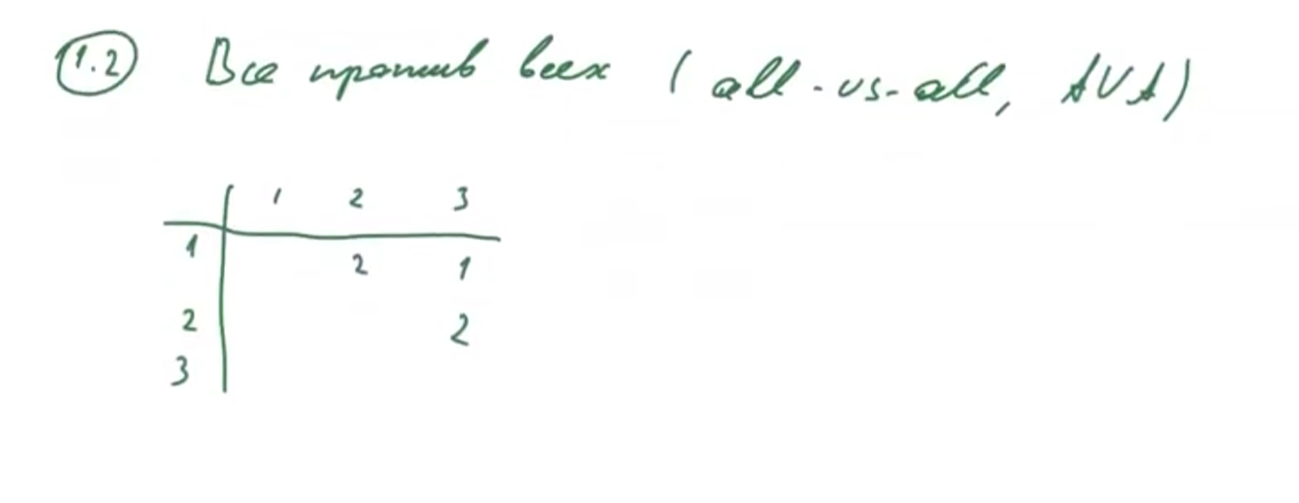 1.2 Все против всех (all-vs-all, AVA)
1 2 3
1 2 1
2 2
3